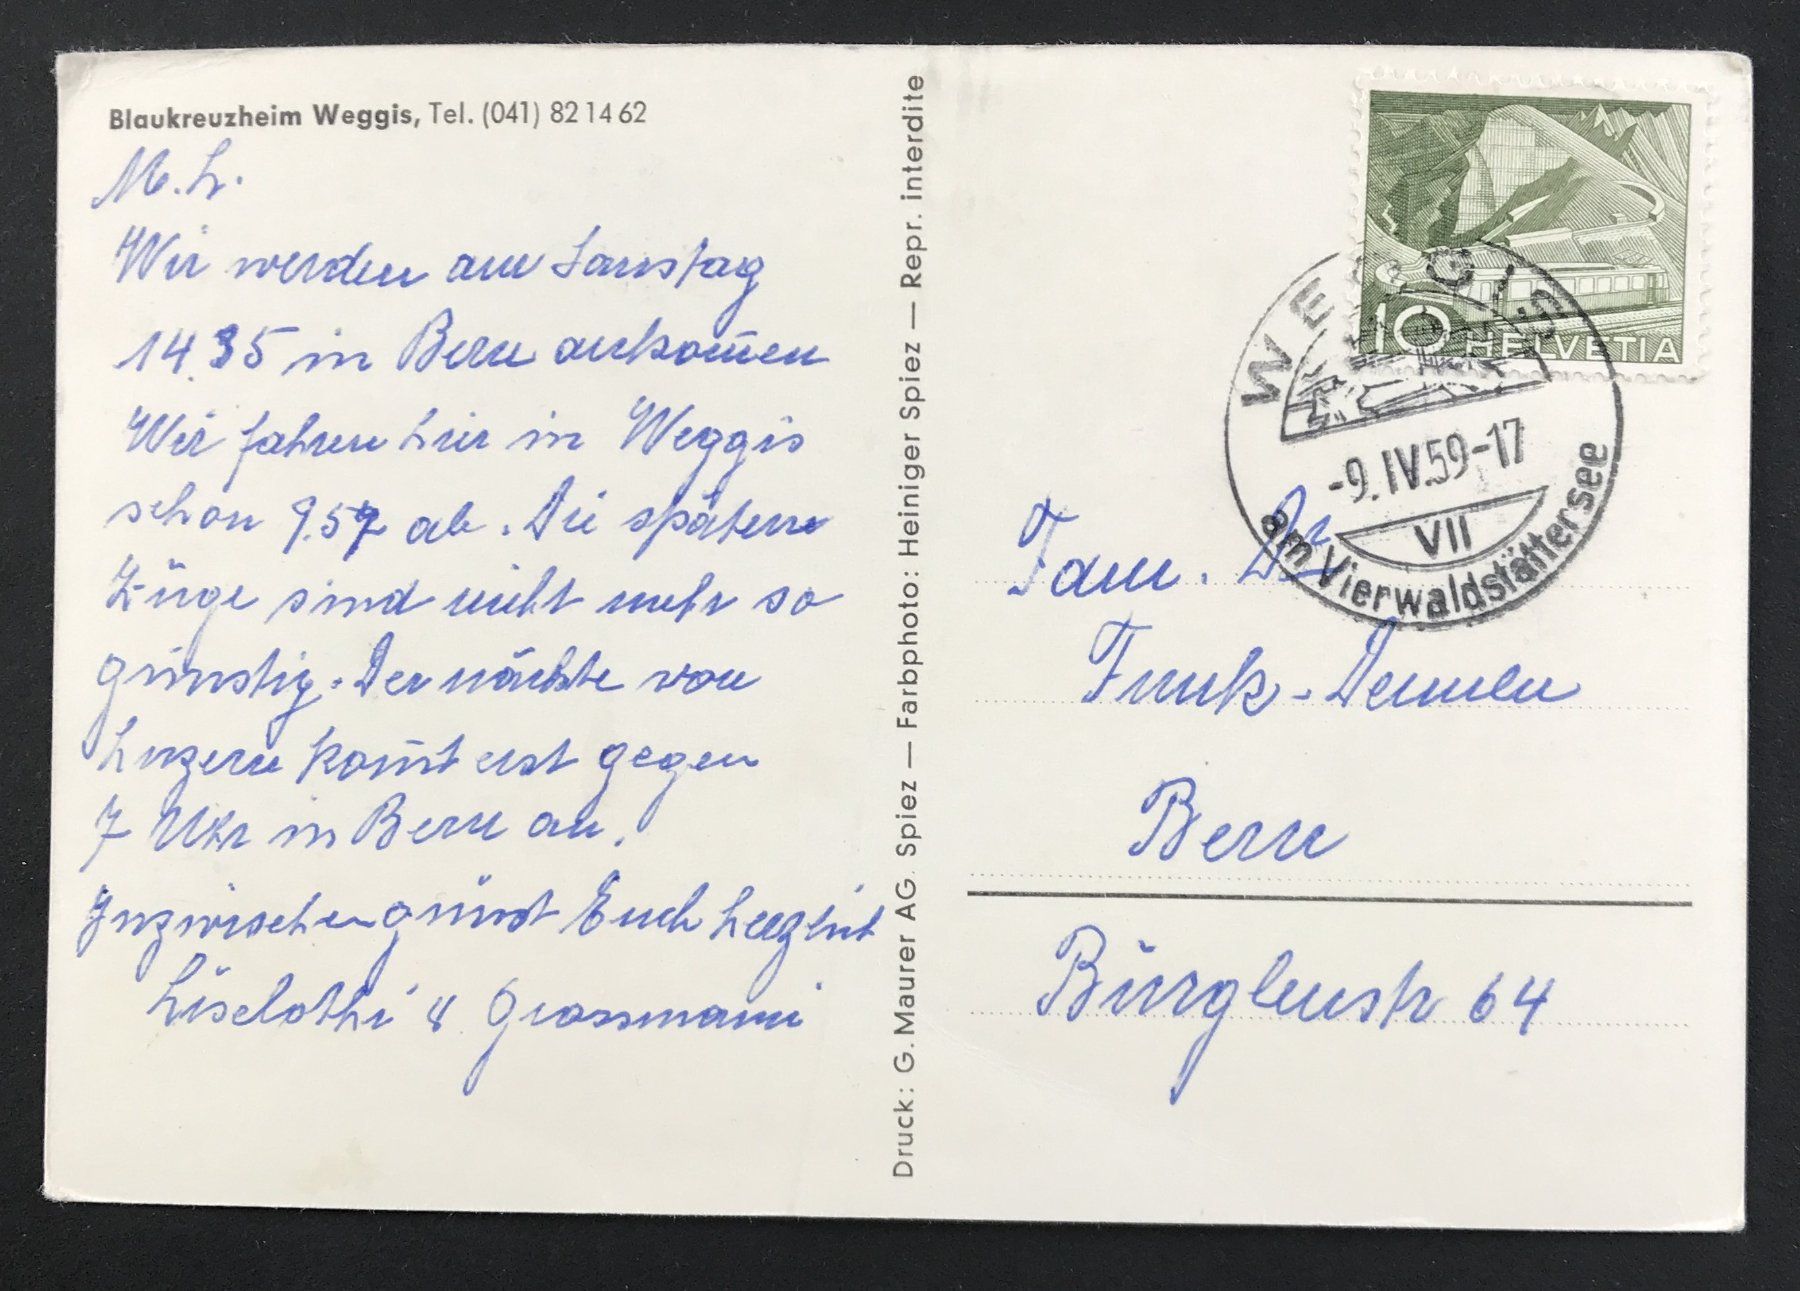 Blaukreuzheim Weggis, Tel. (041) 82 14 62
M. L.
Wir werden am Samstag
14.35 in Bern ankom̄en
Wir fahren hier in Weggis
schon 9.57 ab. Die spätern
Züge sind nicht mehr so
günstig. Der nächste von
Luzern kom̄t erst gegen
7 Uhr in Bern an.
Inzwischen grüsst Euch herzlich
& Grossmami
Druck: G. Maurer AG. Spiez — Farbphoto: Heiniger Spiez — Repr. interdite
10 HELVETIA
WEGGIS
-9.IV.59-17
VII
am Vierwaldstättersee
Fam. Dr
Funk-
Bern
Bürglenstr 64